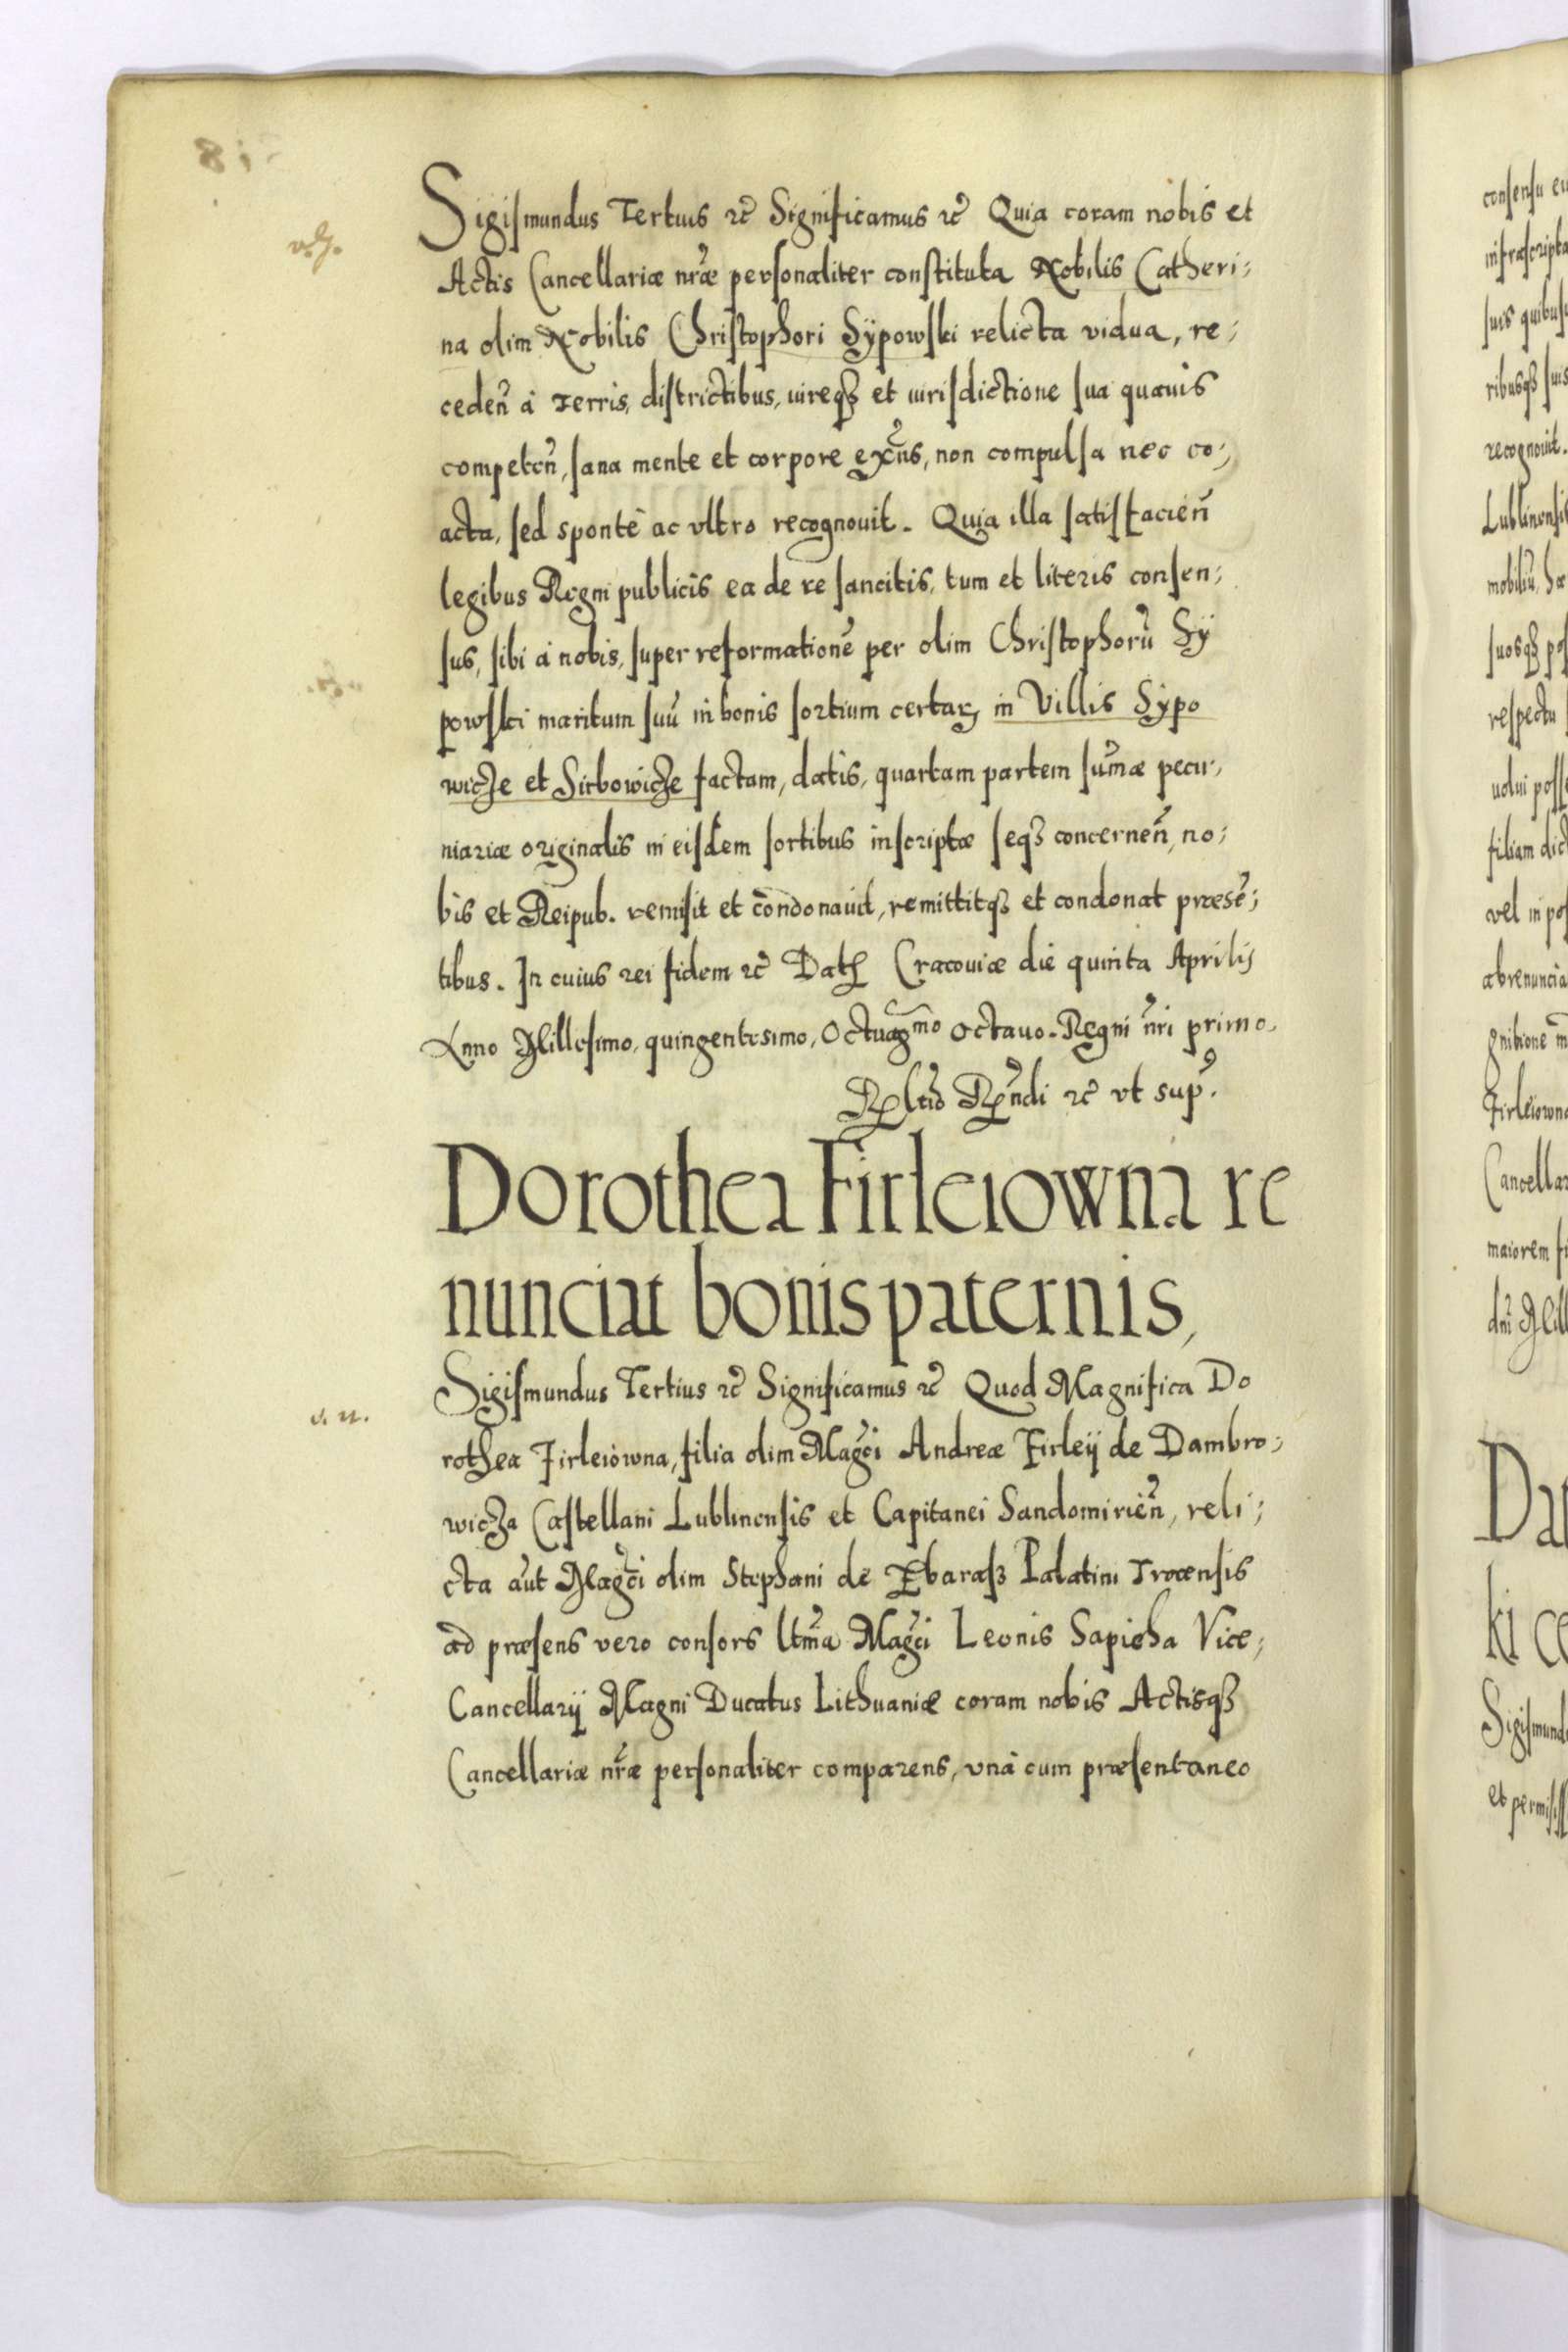 Sigismundus Tertius etc̃ Significamus etc̃ Quia coram nobis et
Actis Cancellariæ nr̃æ personaliter constituta Nobilis Catheri;
na olim Nobilis Christophori Sÿpowski relicta vidua, re;
ceden̄ à Terris, districtibus, iureqȝ et iurisdictione sua quauis
competen̄, sana mente et corpore exn̄s, non compulsa nec co;
acta, sed sponte ac vltro recognouit. Quia illa satisfacien̄
legibus Regni publicis ea de re sancitis, tum et literis consen;
sus, sibi à nobis, super reformationē per olim Christophorū Sÿ
powski maritum suū in bonis sortium certarꝝ in Villis Sÿpo
wicze et Sirbowicze factam, datis, quartam partem sum̄æ pecu;
niariæ originalis in eisdem sortibus inscriptæ seqȝ concernen̄, no;
bis et Reipub. remisit et condonauit, remittitqȝ et condonat præsē;
tibus. In cuius rei fidem etc̃ Datꝭ Cracouiæ die quinta Aprilis
Anno Millesimo, quingentesimo, Octuagmo octauo. Regni nr̃i primo.
etc̃ vt sup.
Dorothea Firleiowna re
nunciat bonis paternis,
Sigismundus Tertius etc̃ Significamus etc̃ Quod Magnifica Do
rothea Firleiowna, filia olim Magci Andreæ Firleÿ de Dambro;
wicza Castellani Lublinensis et Capitanei Sandomirien̄, reli;
cta aūt Magci olim Stephani de Zbaraß Palatini Trocensis
ad præsens vero consors ltm̄a Magci Leonis Sapieha Vice;
Cancellarÿ Magni Ducatus Lithuaniæ coram nobis Actisqȝ
Cancellariæ nr̃æ personaliter comparens, vnà cum præsentaneo